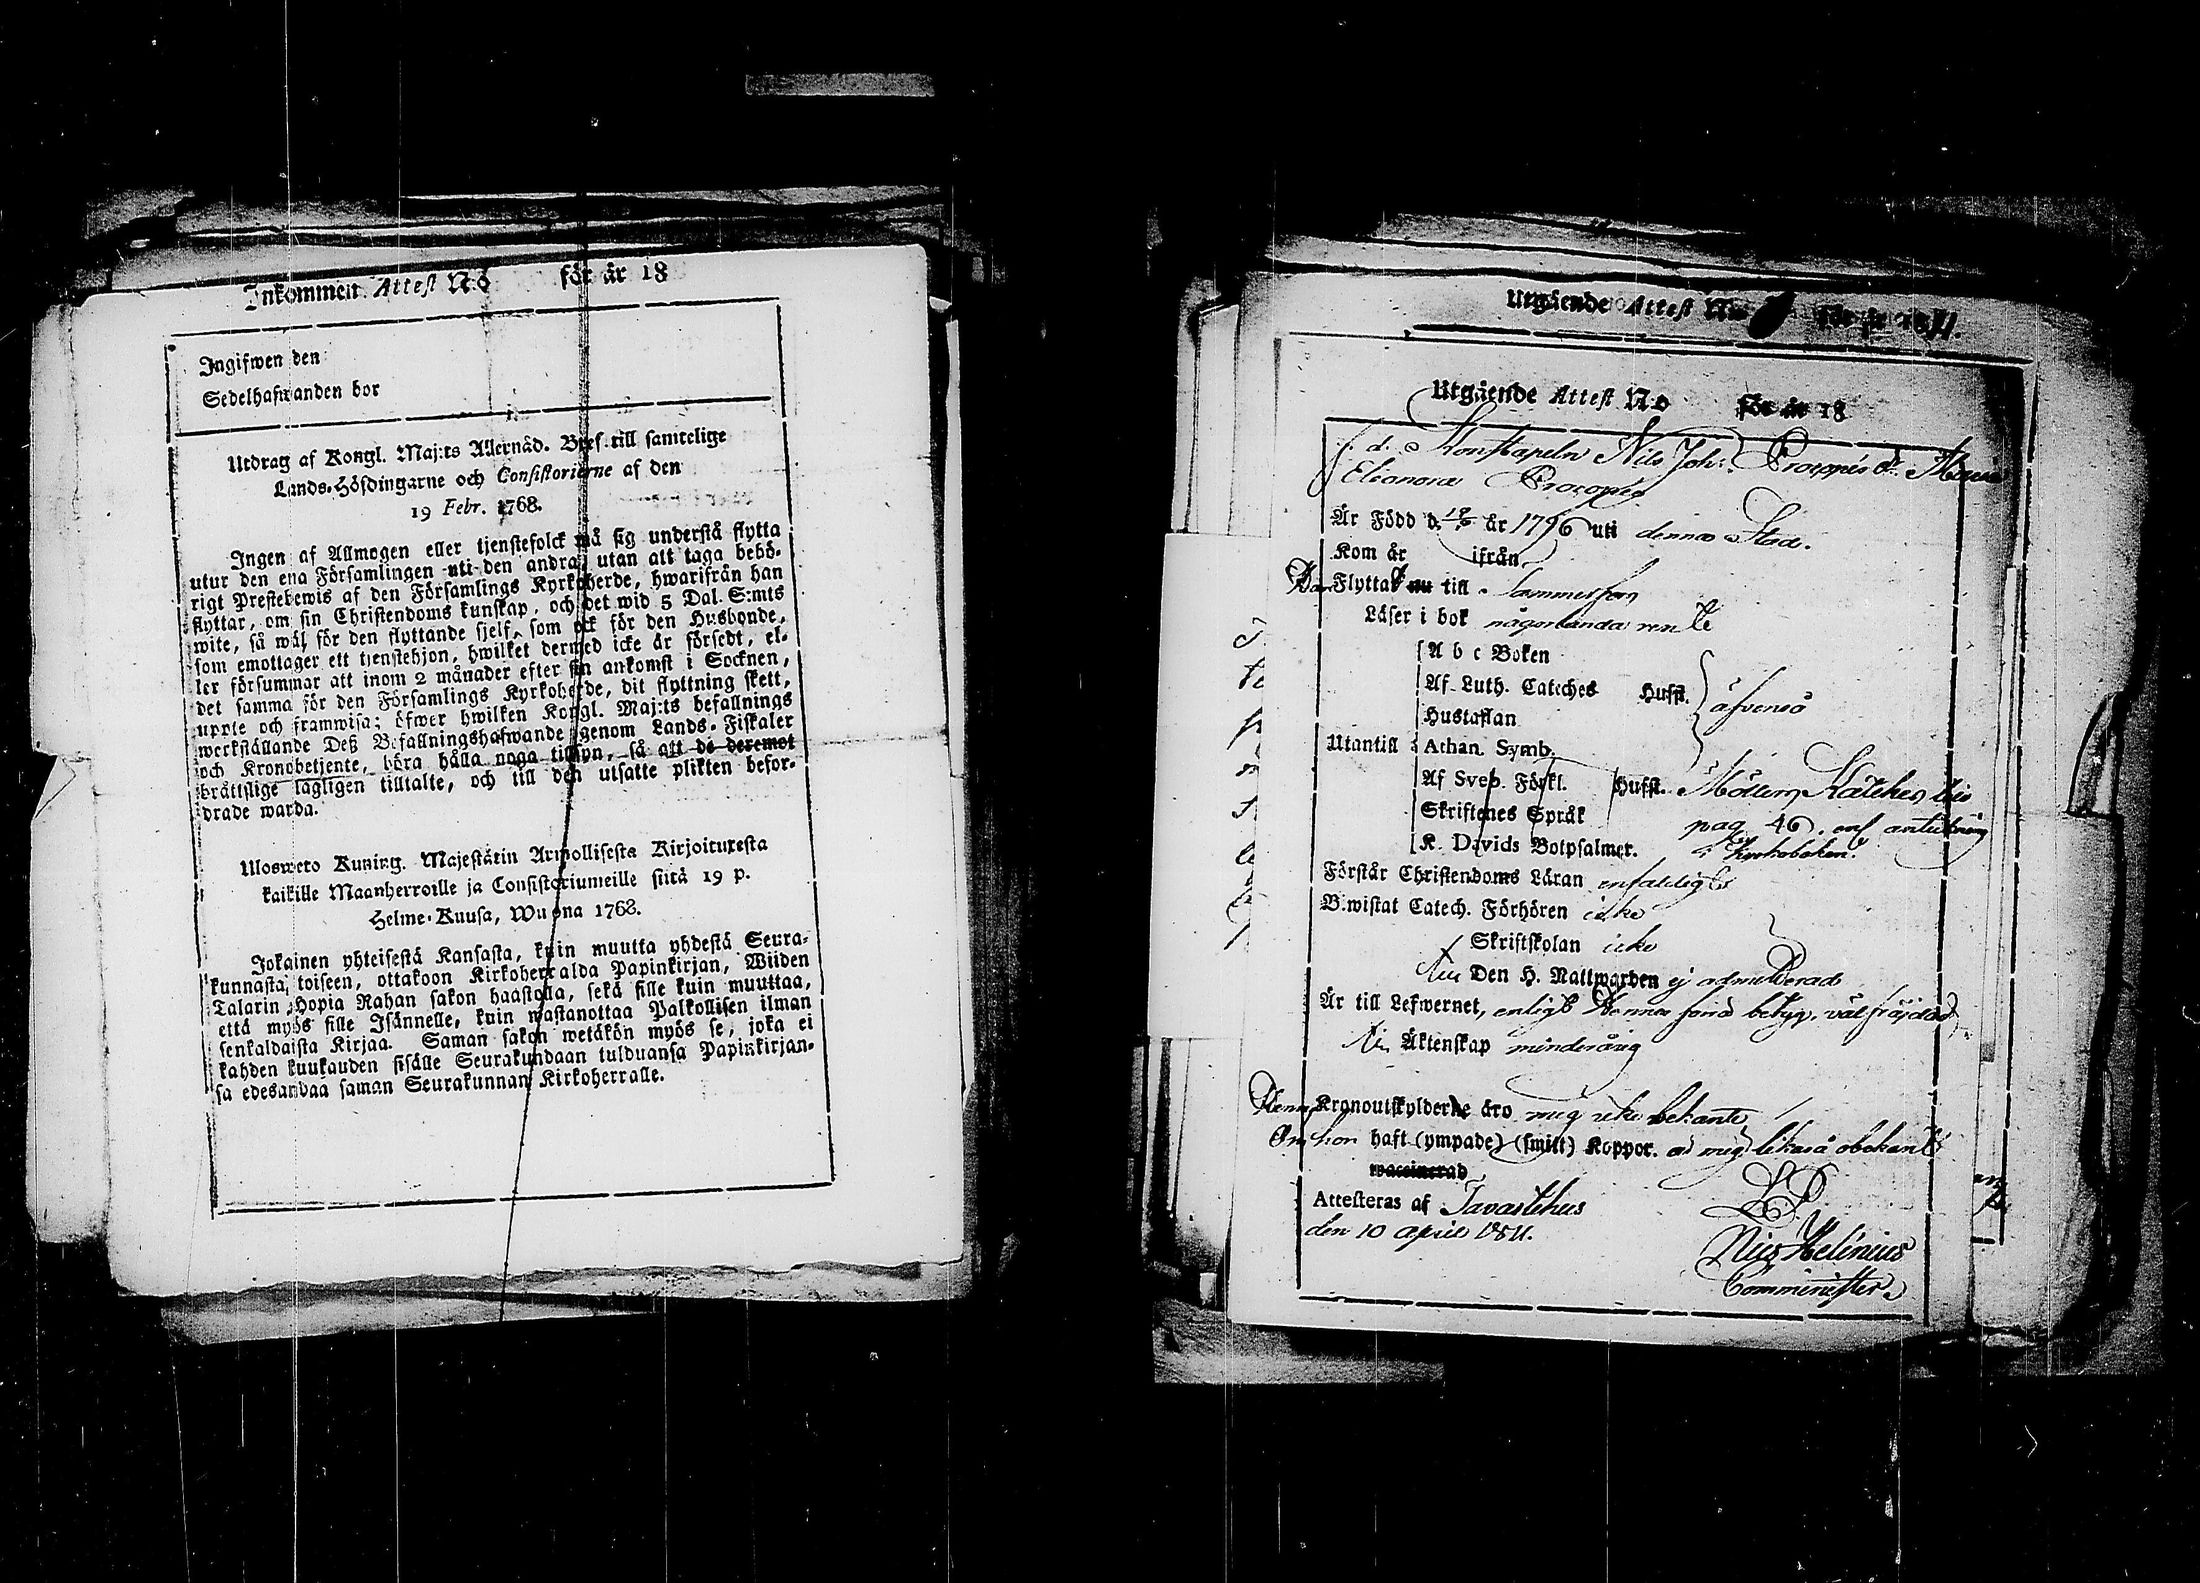 Inkommen Attest No för år 18
Ingifwen den
Sedelhafwanden bor
Utdrag af Kongl. Maj:ts Allernåd. Bref till samtelige
Lands-Höfdingarne och Consistorierne af den
19 Febr. 1768.
Ingen af Allmogen eller tjenstefolck må sig understå flytta
utur den ena Församlingen uti den andra, utan att taga behö-
rigt Prestebewis af den Församlings Kyrkoherde, hwarifrån han
flyttar, om sin Christendoms kunskap, och det wid 5 Dal. S:mts
wite, så wäl för den flyttande sjelf, som ock för den Husbonde,
som emottager ett tjenstehjon, hwilket dermed icke är försedt, el-
ler försummar att inom 2 månader efter sin ankomst i Socknen,
det samma för den Församlings Kyrkoherde, dit flyttning skett,
uppte och framwisa; öfwer hwilken Kongl. Maj:ts befallnings
werkställande Deß Befallningshafwande genom Lands-Fiskaler
och Kronobetjente, böra hålla noga tillsyn, så att de deremot
bråttslige lagligen tilltalte, och till den utsatte plikten befor-
drade warda.
Ulosweto Kuning. Majestätin Armollisesta Kirjoituxesta
kaikille Maanherroille ja Consistoriumeille siitä 19 p.
Helme-Kuusa, Wuona 1768.
Jokainen yhteisestä Kansasta, kuin muutta yhdestä Seura-
kunnasta toiseen, ottakoon Kirkoherralda Papinkirjan, Wiiden
Talarin Hopia Rahan sakon haastolla, sekä sille kuin muuttaa,
että myös sille Isännelle, kuin wastanottaa Palkollisen ilman
senkaldaista Kirjaa. Saman sakon wetäkön myös se, joka ei
kahden kuukauden sisälle Seurakundaan tulduansa Papinkirjan-
sa edesandaa saman Seurakunnan Kirkoherralle.
Utgående Attest No för år 1811.
Utgående Attest No för år 18
f. d. Konstapeln Nils Joh: Procopés dr Maria
Eleonora Procopé
Är Född d. år 1796 uti denna Stad.
Kom år ifrån
Har Flyttat nu till Tammerfors
Läser i bok någorlunda rent
A b c Boken
Af Luth. Cateches Hufst. äfvenså
Hustaflan
Utantill Athan. Symb.
Af Sveb. Förkl. Hufst. Möllers Katekes till
Skriftenes Språk pag 46. enl anteckning
K. Davids Botpsalmer. i Kyrkoboken.
Förstår Christendoms Läran enfaldigt
Bewistat Catech. Förhören icke
Skriftskolan icke
Till Den H. Nattwarden ej admitterad
Är till Lefwernet, enligt Hennes förra betyg, välfräjdad
Till Äktenskap minderårig
Hennes Kronoutskylder äro mig icke bekante
Om hon haft (ympade) (smitt) Koppor. är mig likaså obekant
waccinerad
Attesteras af Tavastehus LS
den 10 April 1811.
Nils Helenius
Comminister